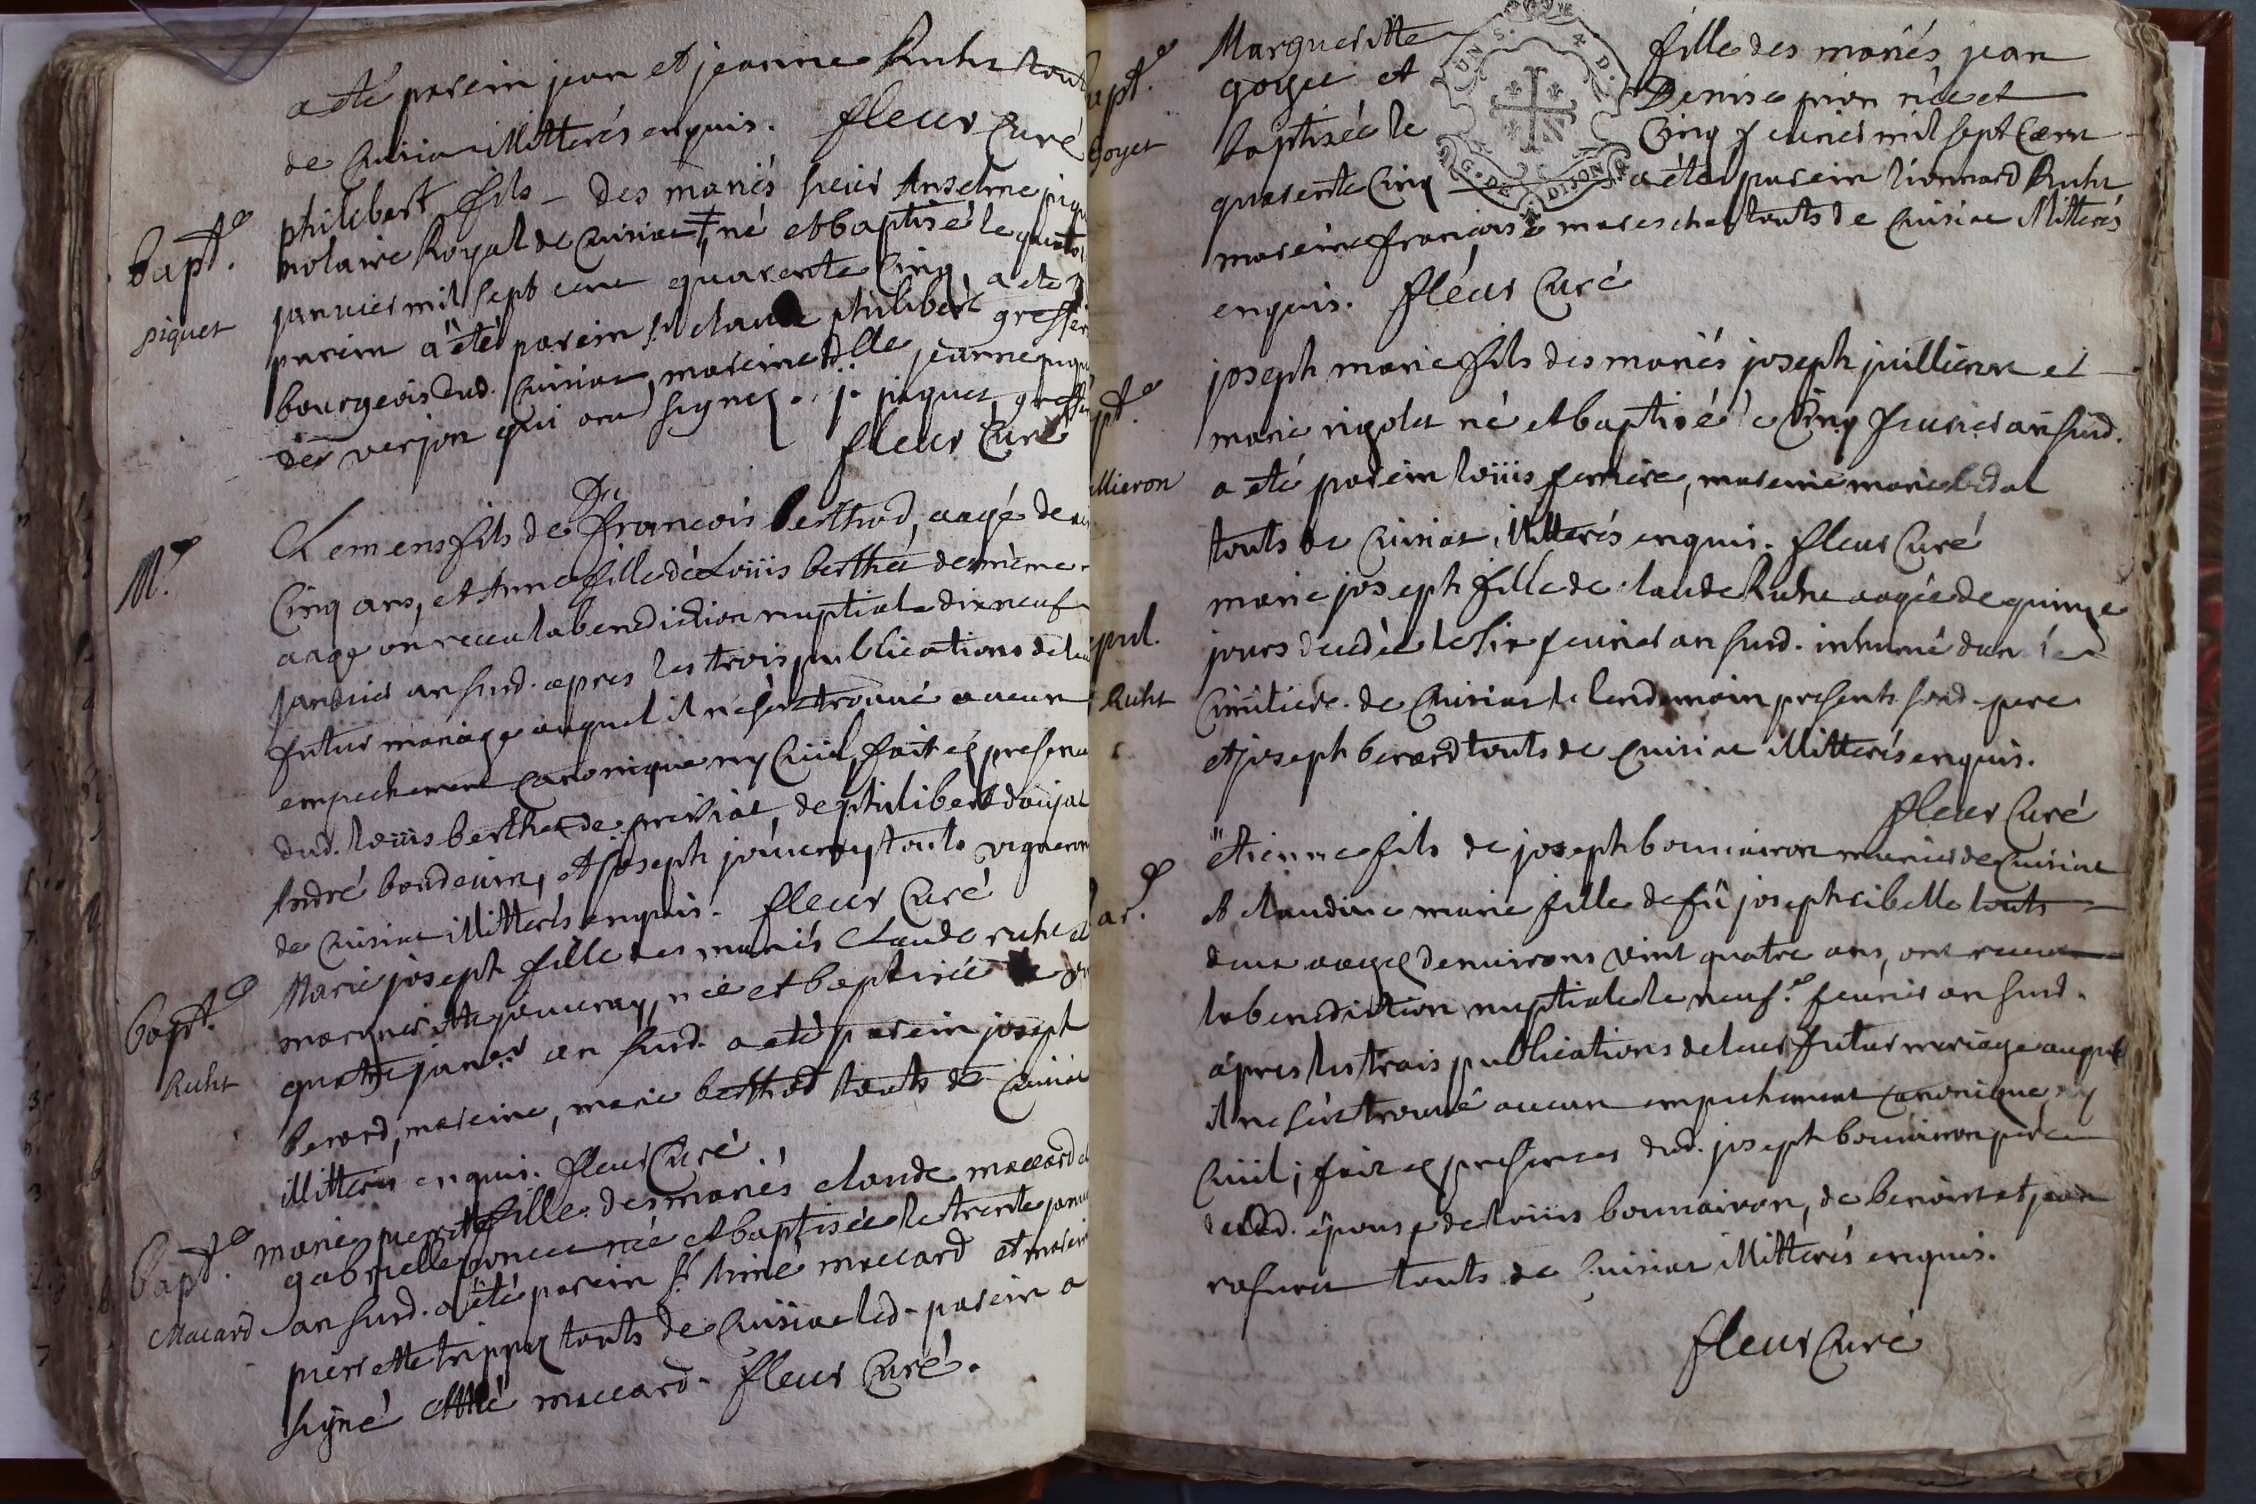 a eté parein jean et jeanne Ruht tout
de Cuisia illitterés enquis. fleur Curé
bapt.e
piquet
philebert fils - des mariés sieur Anselme piqu
notaire Royal de Cuisiat né et baptisé le quato
januier mil sept cent quarente Cinq, a ete
parein a été parein sr claude philibert greffier
bourgeois dud. Cuisiat, mareine dlle jeanne piqu
der verjon qui ont signez. j. piquet, greffier
fleur Curé
M.e
Clemens fils de françois berthod, aagé de
Cinq ans, et Anne fille de Loüis berthet de même
aage on receu la benediction nuptiale dixneuf
januier an susd. apres les trois publications de leu
futur mariage auquel il ne s'est trouué aucun
empechement canonique ny Ciuil, fait ez presence
dud. loüis berthet de pressiat, de philibert doüjat
André boudeuin, et joseph jouuray touts vigneron
de Cuisiat illitterés enquis. fleur Curé
bapt.e
Ruht
Marie joseph fille des mariés claude ruht et
marguerite jouuray, née et baptisée le vin
quatre januer an susd. a eté parein joseph
berard, mareine, marie berthod touts de Cuisiat
illitterés enquis. fleur Curé
bapt.e
Macard
marie pierrette fille des mariés claude maccard et
gabrielle poncet née et baptisée le trente januie
an susd. a été parein sr Aimé maccard et marein
pierrette trippoz touts de Cuisiat led. parein a
signé Amé maccard. fleur Curé.
bapt.e
Goyet
Margueritte fille des mariés jean
goyet et Denise pion née et
baptisée le Cinq feurier mil sept Cent
quarente Cinq a été parein lionnard Ruht
mareine françoise mareschal touts de Cuisiat illitterés
enquis. fleur Curé
pt.e
llieron
joseph marie fils des mariés joseph juillieron et
marie rigolet né et baptisé le Cinq feurier an susd.
a eté parein loüis ferriere, mareine marie bedat
touts de Cuisiat, illitterés enquis. fleur Curé
epul.
Ruht
marie joseph fille de claude Ruht aagée de quinze
jours decedée le six feurier an susd. inhumé dans le
Cimitiere de Cuisiat le lendemain presents sond. pere
et joseph berard touts de Cuisiat illitterés enquis.
fleur Curé
ar.e
etienne fils de joseph bouuairon munier de Cuisiat
et claudine marie fille de fû joseph cibelle touts
deux aagez denuirons vint quatre ans, ont receu
la benediction nuptiale le neuf.e feurier an susd.
apres les trois publications de leur futur mariage auquel
il ne s'est trouué aucun empechement canonique ny
Ciuil; fait ez presences dud. joseph bouuairon pere
dud. épouse de loüis bouuairon, de benoist et jean
rasurel touts de Cuisiat illitterés enquis.
fleur Curé